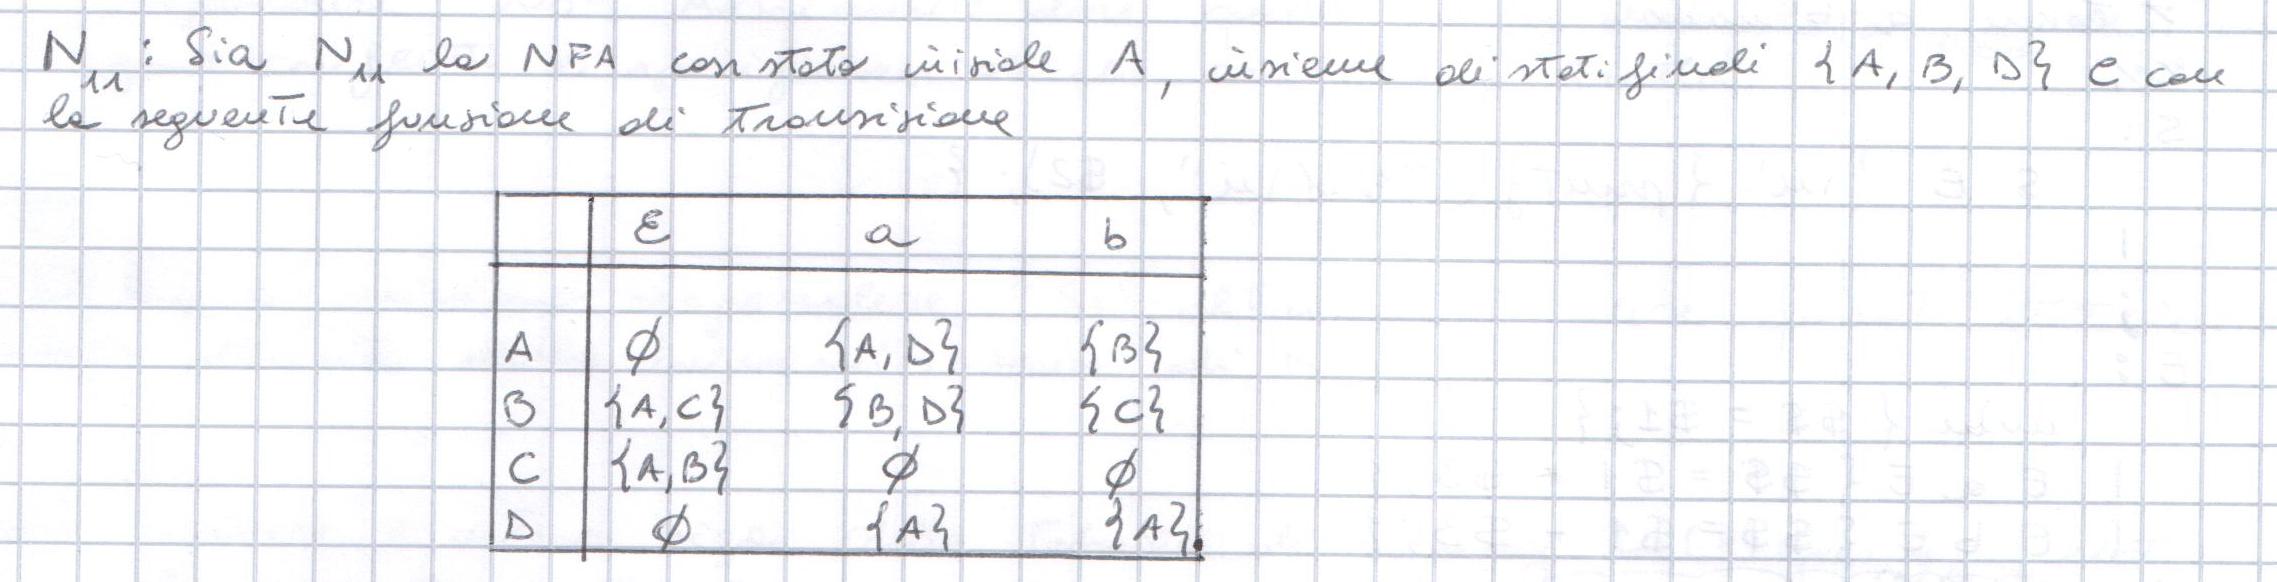 N₁₁: Sia N₁₁ lo NFA con stato iniziale A, insieme di stati finali {A, B, D} e con
la seguente funzione di transizione
ε a b
A ∅ {A, D} {B}
B {A, C} {B, D} {C}
C {A, B} ∅ ∅
D ∅ {A} {A}.